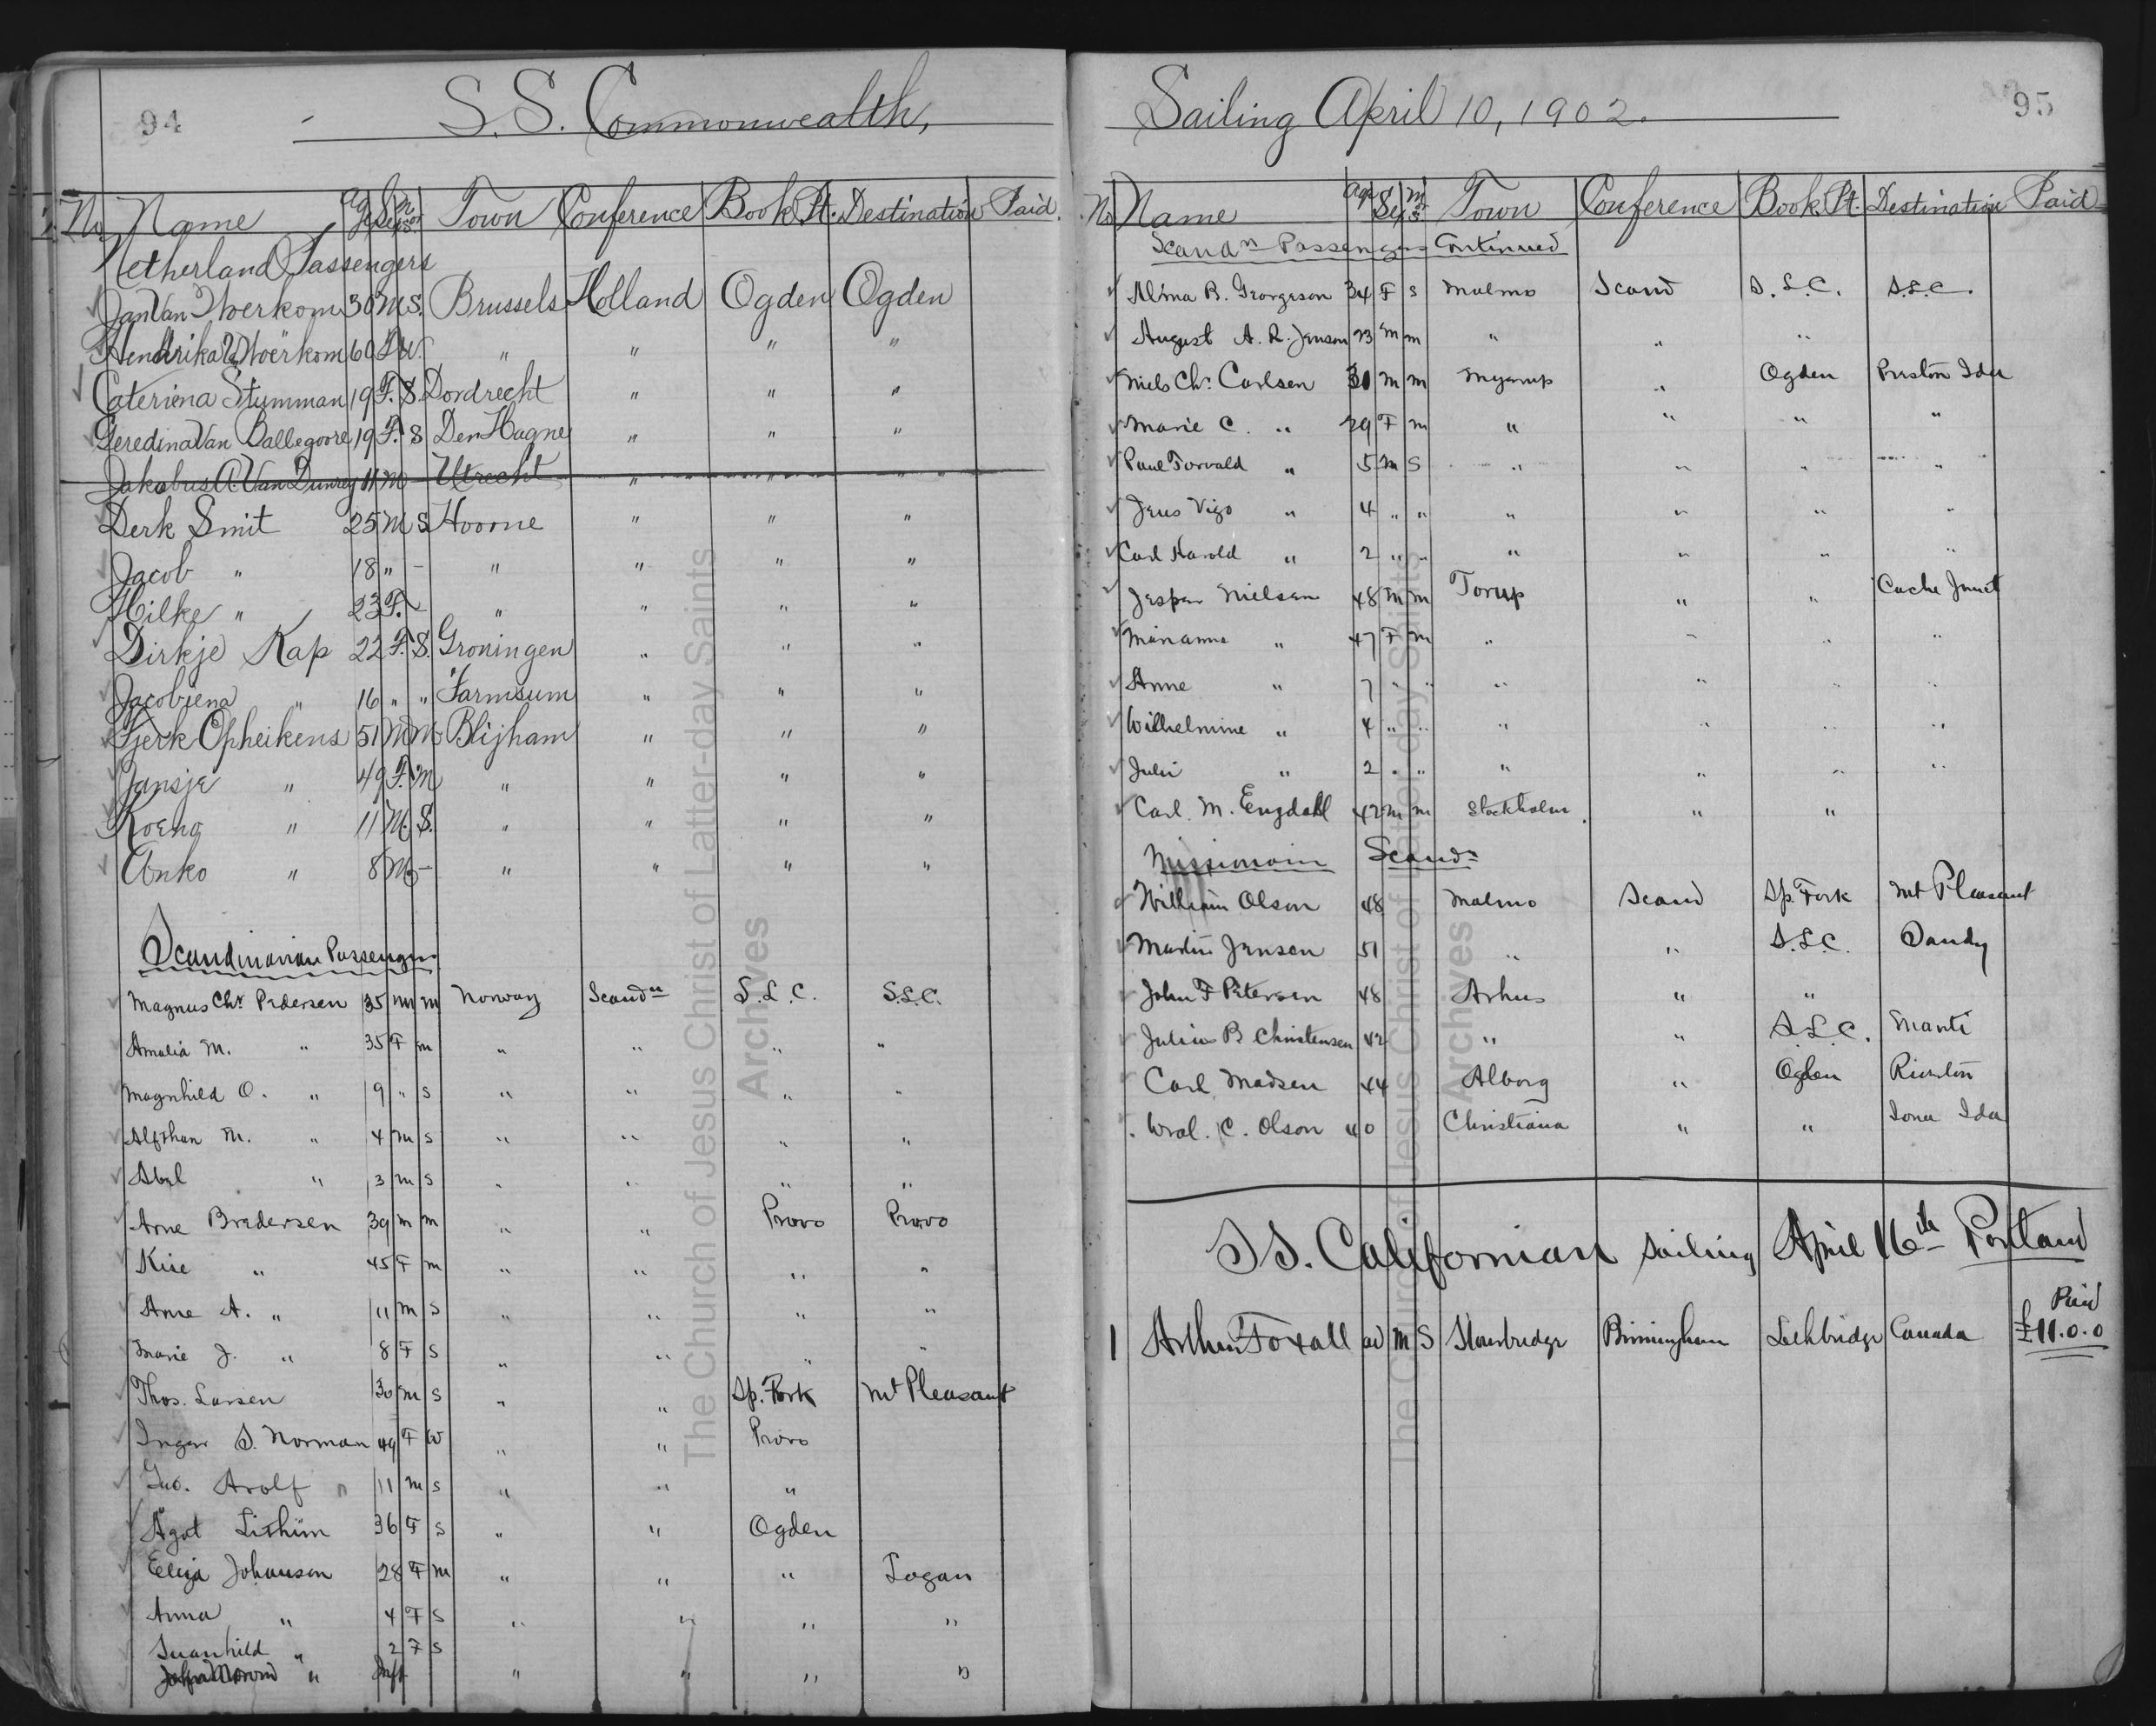 94
S. S. Commonwealth,
No Name Age Sex M or S Town Conference Book Pt. Destination Paid.
Netherland Passengers
Jan Van Woerkom 30 M S. Brussels Holland Ogden Ogden
Hendrika V Woerkom 60 F W. " " " "
Cateriena Stumman 19 F. S. Dordrecht " " "
Geredina Van Ballegoore 19 F. S Den Hagne " " "
Jakobus A. Van 11 M - Utrecht " " "
Derk Smit 25 M S Hoorne " " "
Jacob " 18 " - " " " "
Hilke " 23 F. - " " " "
Dirkje Kap 22 F. S. Groningen " " "
Jacobiena " 16 " " Farmsum " " "
Tjerk Opheikens 51 M M Blijham " " "
Jansje " 49 F. M " " " "
Koeno " 11 M. S. " " " "
Anko " 8 M - " " " "
Scandinavian Passengers
Magnus Chr. Pedersen 35 m m Norway Scandn S. L. C. S.L.C.
Amalia M. " 35 F m " " " "
Magnhild O. " 9 " s " " " "
Alfthan M. " 4 m s " " " "
Abel " 3 m s " " " "
Arne Bredersen 39 m m " " Provo Provo
Kire " 45 F m " " " "
Arne A. " 11 m s " " " "
Marie J. " 8 F s " " " "
Thos. Larsen 30 m s " " Sp. Fork Mt Pleasant
Inger S. Norman 49 F W " " Provo
Arolf " 11 m s " " "
Agot 36 F s " " Ogden
Eliza Johansen 28 F m " " " Logan
Anna " 4 F s " " " "
" 2 F s
" Inft " " " "
95
Sailing April 10, 1902.
No Name Age Sex M or S Town Conference Book. Pt. Destination Paid
Scandn Passengers Continued
Alma B. Georgeson 34 F s Malmo Scand S. L. C. S.L.C.
August A. R. Jenson 23 m m " " "
Niels Chr. Carlsen 30 m m Ogden Preston Ida
Marie C. " 29 F m " " " "
Paul Torvald " 5 m s " " " "
Jens Vigo " 4 " " " " " "
Carl Harold " 2 " " " " " "
Jesper Nielsen 48 m m Torup " " Cache Junct
Marianne " 47 F m " " " "
Anne " 7 " " " " " "
Wilhelmine " 4 " " " " " "
Julie " 2 " " " " " "
Carl. M. Engdahl 42 m m Stockholm. " "
Scandn
William Olson 48 Malmo Scand Sp. Fork Mt Pleasant
Martin Jensen 51 " " S.L.C. Sandy
John F Petersen 48 Arhus " "
Julius B Christensen 42 " " S.L.C. Manti
Carl Madsen 44 Alborg " Ogden
C. Olson 40 Christiana " " Iona Ida
SS. Californian sailing April 16th Portland
Paid
1 Arthur Foxall ad M S Stourbridge Birmingham Lethbridge Canada £11.0.0
The Church of Jesus Christ of Latter-day Saints
Archives
The Church of Jesus Christ of Latter-day Saints
Archives